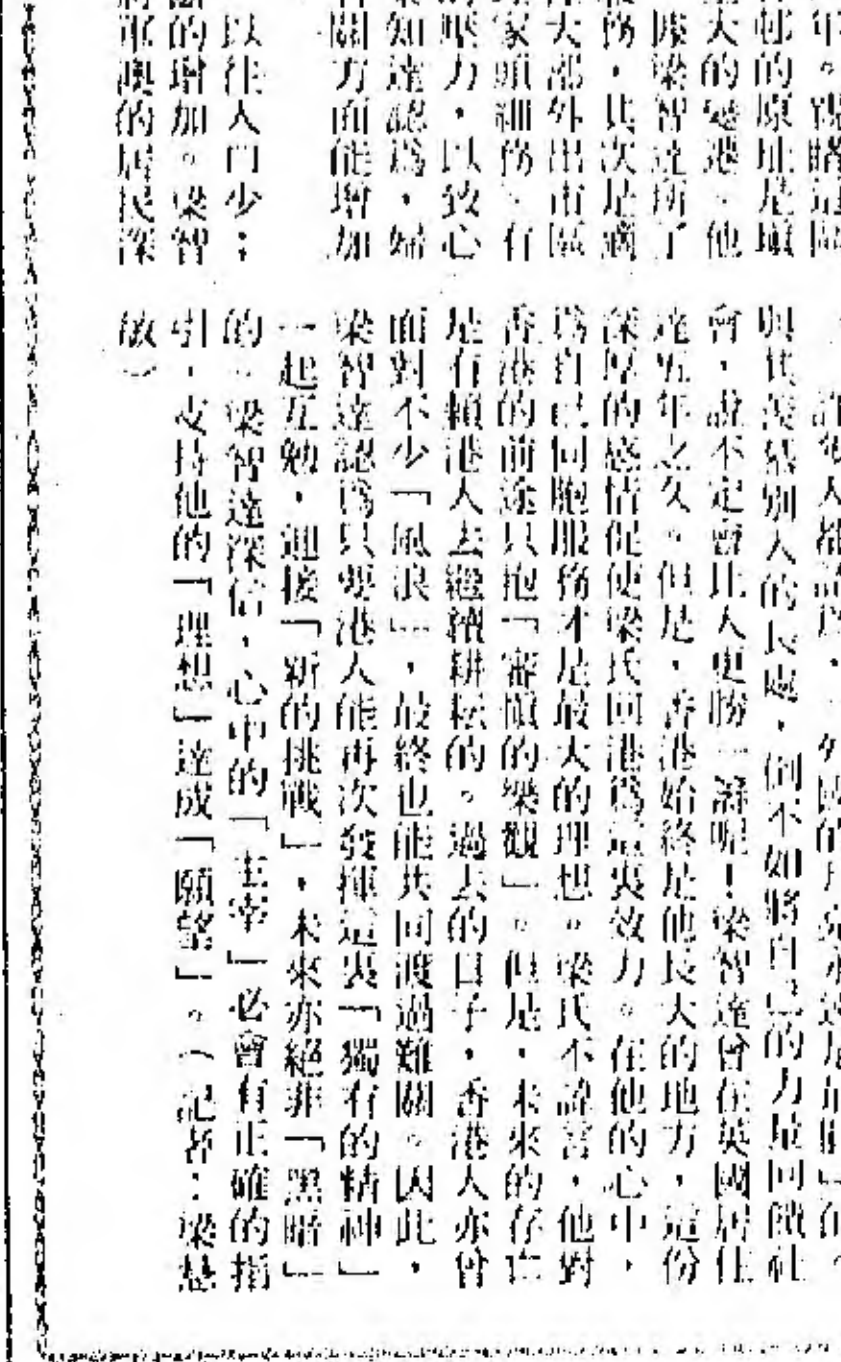 年。視睹這間
邨的原址是墳
大的變遷。他
梁智達所了
務,其次是適
大都外出市區
家頭細務、有
壓力,以致心
知達認為,婦
關方面能增加
以往人口少;
的增加。梁智
將軍澳的居民深
許多人都認為,「外國的月亮永遠是
與其羨慕別人的長處,倒不如將自己的力量回饋社
會,說不定會比人更勝一籌呢!梁智達曾在英國居住
達五年之久。但是,香港始終是他長大的地方,這份
深厚的感情促使梁氏回港為這裏效力。在他的心中,
為自己同胞服務才是最大的理想。梁氏不諱言,他對
香港的前途只抱「審慎的樂觀」。但是,未來的存亡
是有賴港人去繼續耕耘的。過去的日子,香港人亦曾
面對不少「風浪」,最終也能共同渡過難關。因此,
梁智達認為只要港人能再次發揮這裏「獨有的精神」
一起互勉,迎接「新的挑戰」,未來亦絕非「黑暗」
的。梁智達深信,心中的「主宰」必會有正確的指
引,支持他的「理想」達成「願望」。(記者:梁慧
故)